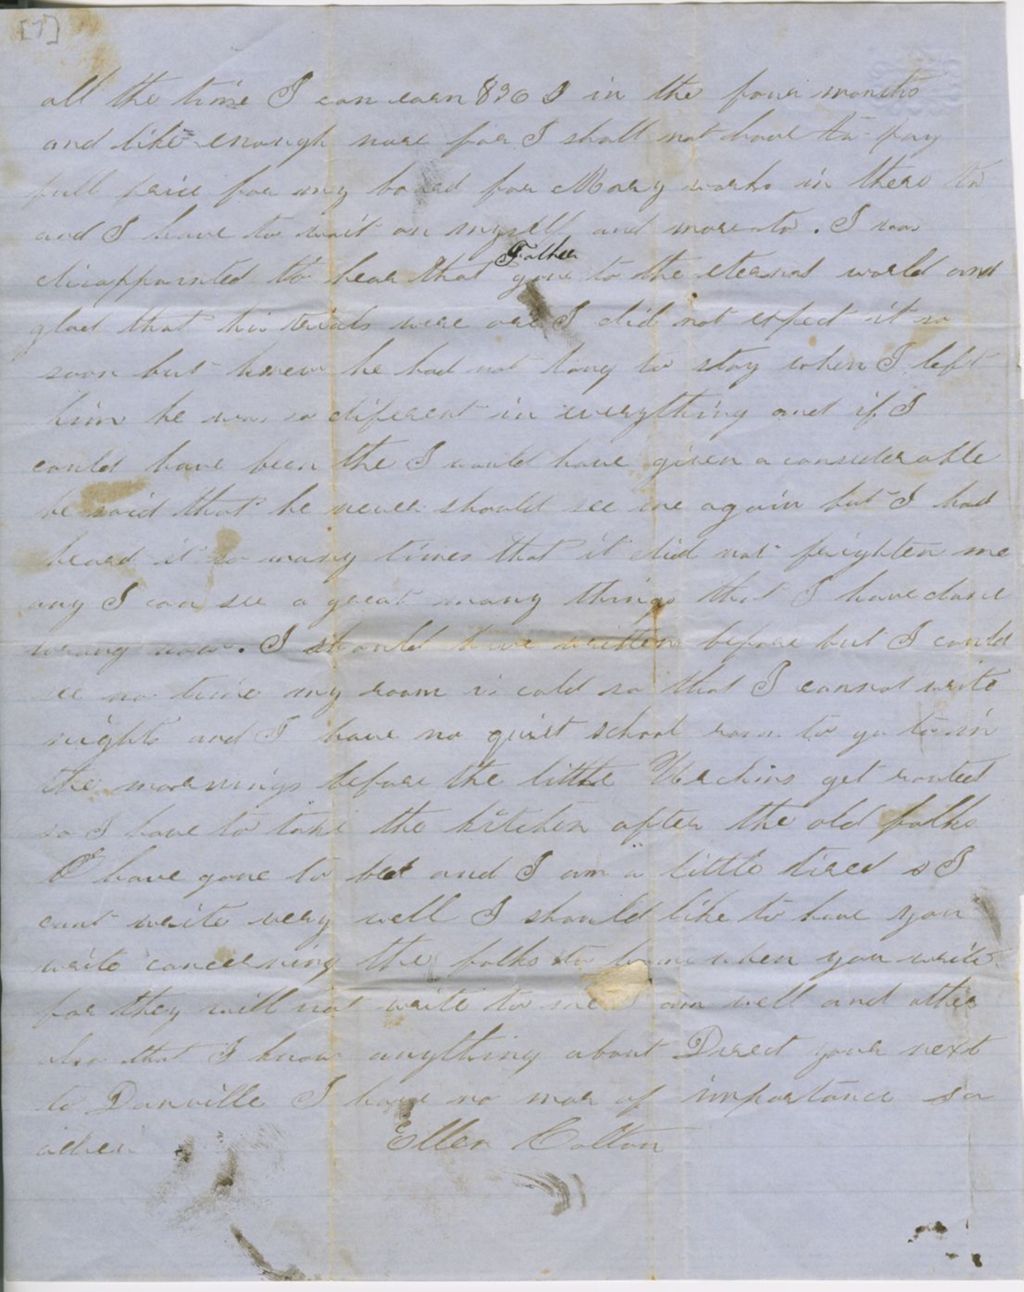 [7]
all the time I can earn in the four months
and like enough more for I shall not have to pay
full price for my board for Mary works in there to
and I have to wait on myself and more to. I was
disappointed to hear that Father gone to the eternal world and
glad that his trials were over I did not expect it so
soon but knew he had not long to stay when I left
him he was so diferent in everything and if I
could have been the I would have given a considerable
he said that he never should see me again but I had
heard it so many times that it did not frighten me
any I can see a great many things that I have done
wrong now. I should have written before but I could
see no time my room is cold so that I cannot write
nights and I have no quiet school room to go to in
the mornings before the little Urchins get routed
so I have to take the kitchen after the old folks
have gone to bed and I am a little tired so I
cant write very well I should like to have you
write concerning the folks to home when you write
for they will not write to me I am well and
also that I know anything about Direct your next
to Danville I have no mor of importance so
adieu Ellen Colton